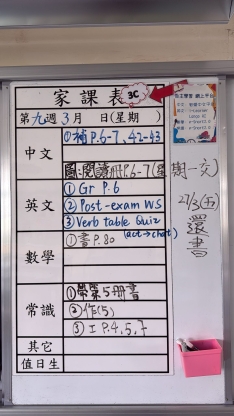 家課表 3C
第九週 3月 日(星期 )
中文
①補 P.6-7, 42-43
閱讀冊P.6-7(星期一交)
英文
① Gr P.6
② Post-exam WS
③ Verb table Quiz
(act→chat)
數學
①書 P.80
常識
①帶第5冊書
②作(5)
③工P.4,5,7
其它
值日生
27/3(五)
還書